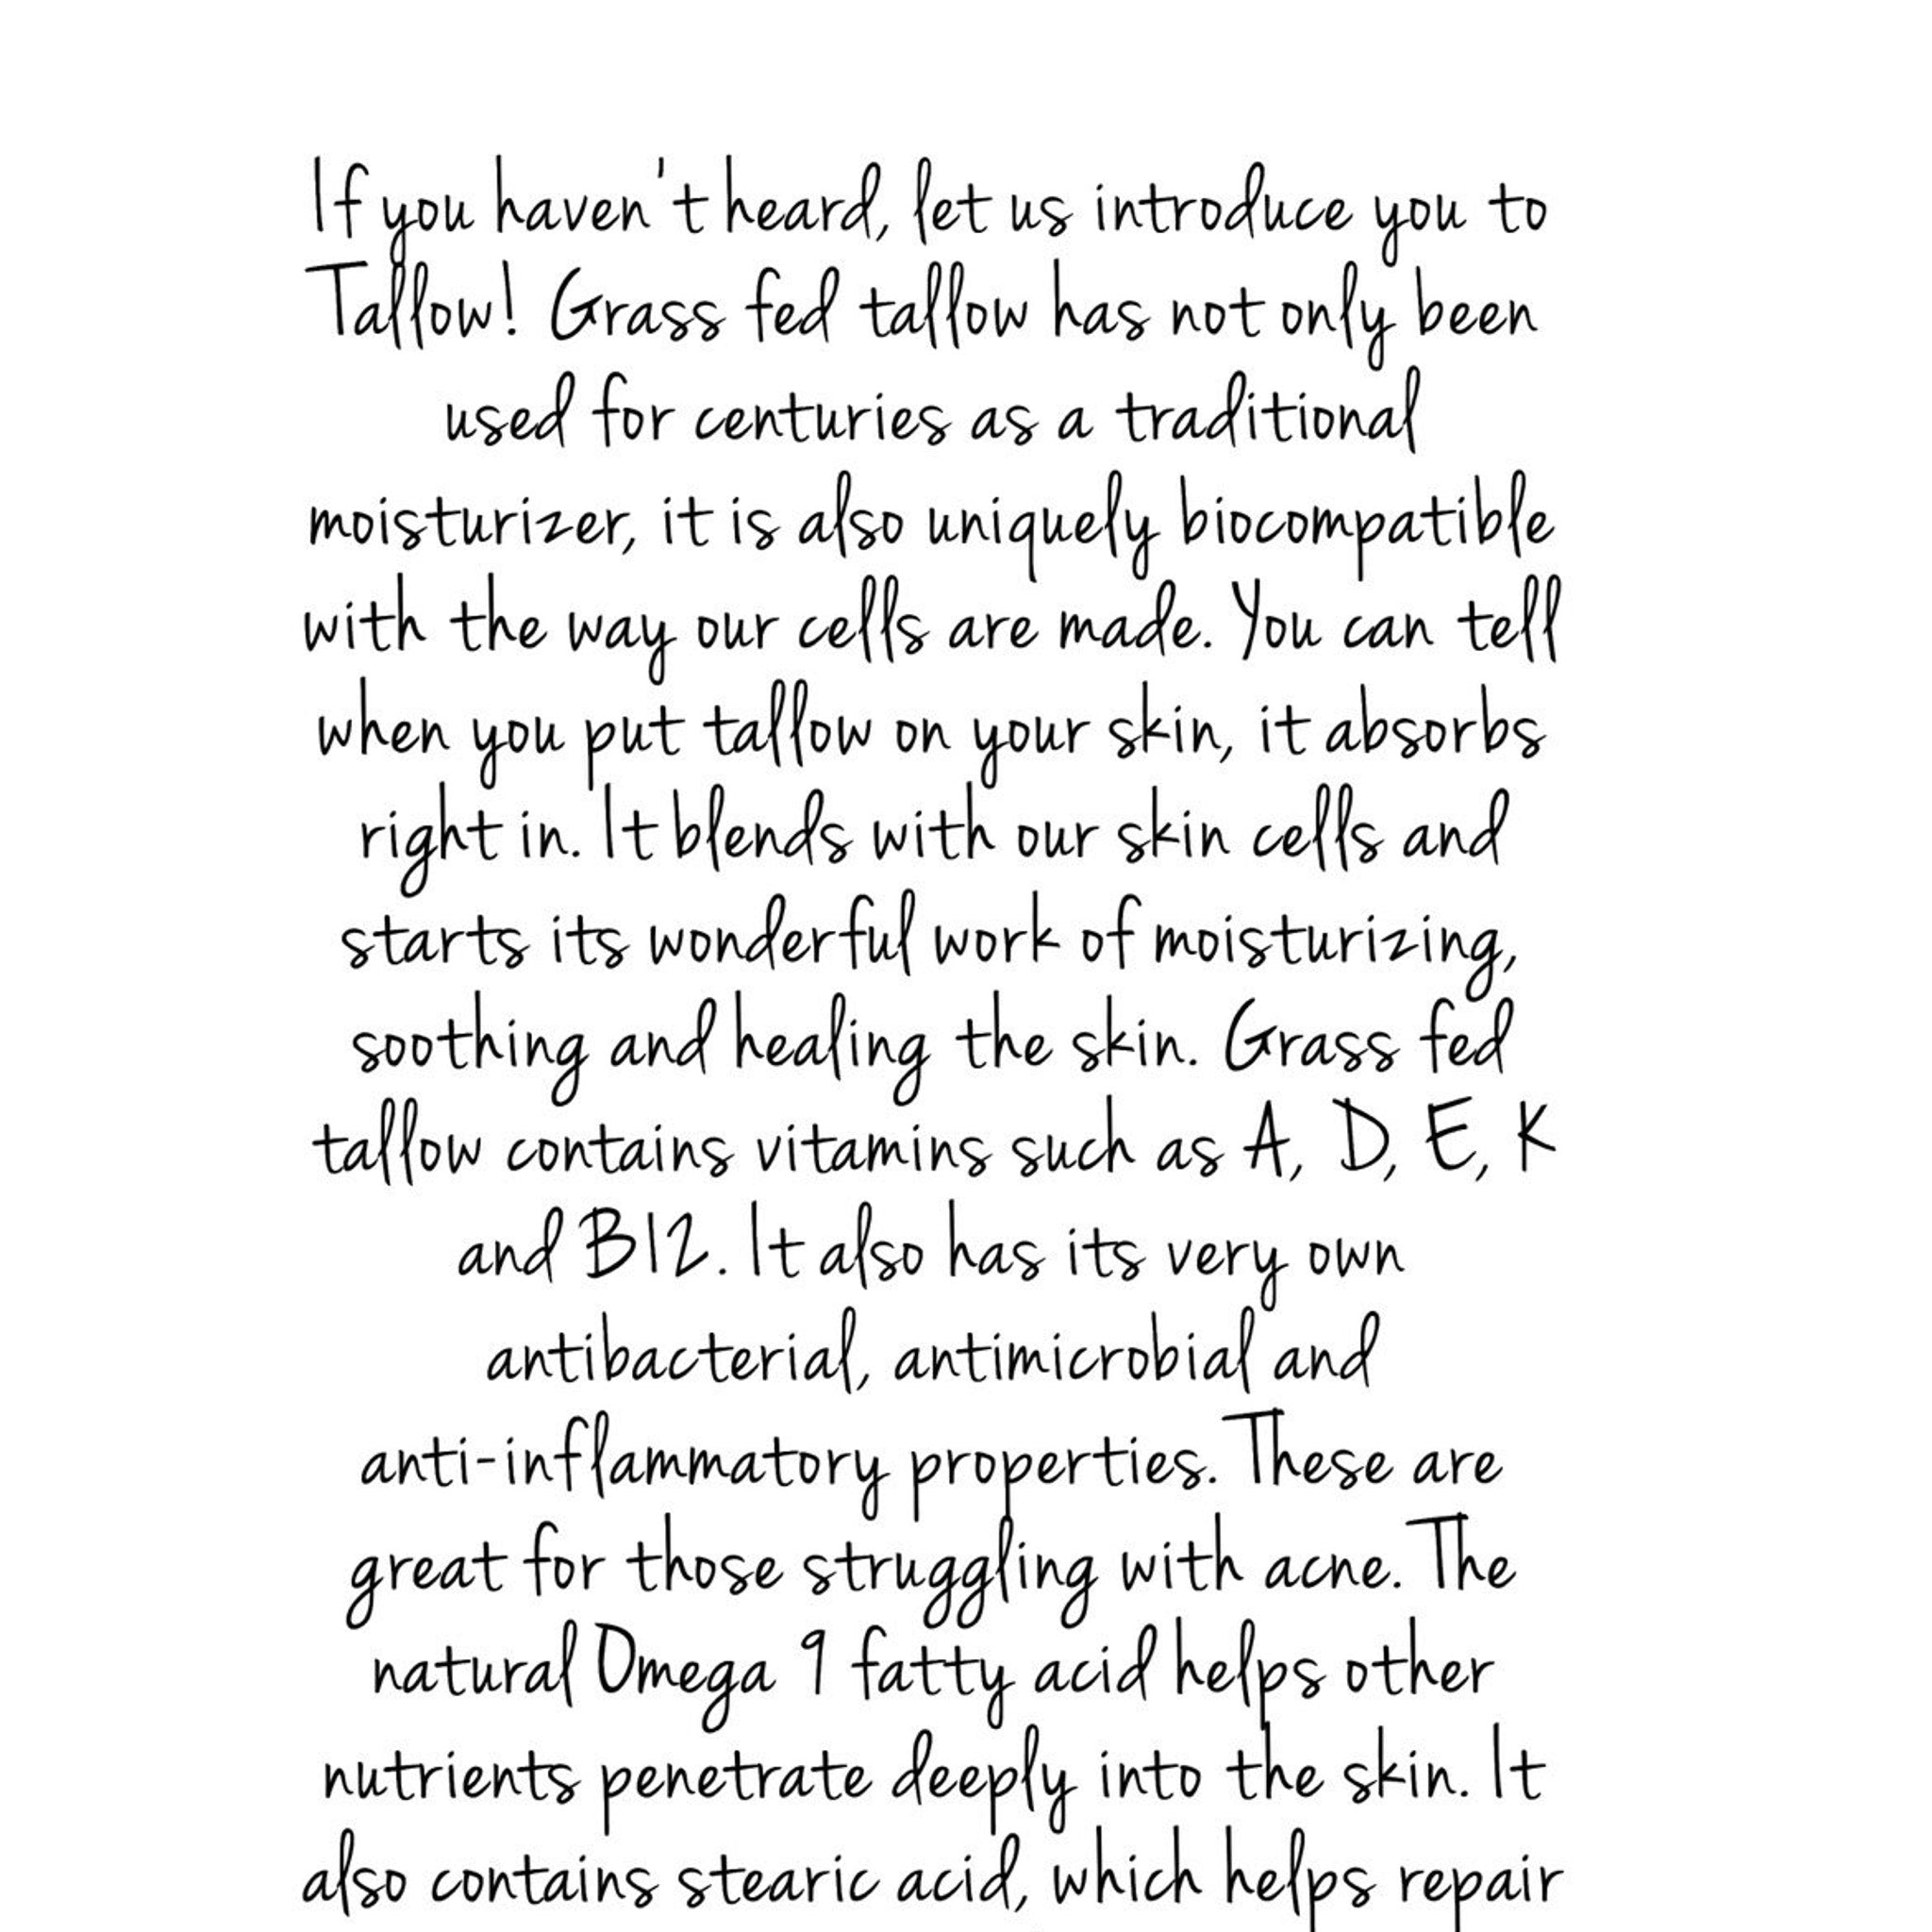 If you haven't heard, let us introduce you to
Tallow! Grass fed tallow has not only been
used for centuries as a traditional
moisturizer, it is also uniquely biocompatible
with the way our cells are made. You can tell
when you put tallow on your skin, it absorbs
right in. It blends with our skin cells and
starts its wonderful work of moisturizing,
soothing and healing the skin. Grass fed
tallow contains vitamins such as A, D, E, K
and B12. It also has its very own
antibacterial, antimicrobial and
anti-inflammatory properties. These are
great for those struggling with acne. The
natural Omega 9 fatty acid helps other
nutrients penetrate deeply into the skin. It
also contains stearic acid, which helps repair